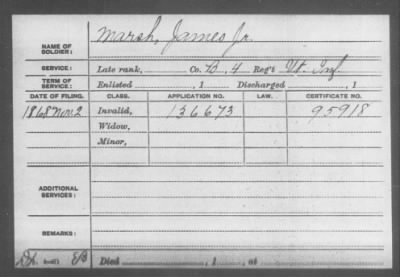 NAME OF SOLDIER: Marsh, James Jr.
SERVICE: Late rank, Co. B, 4 Reg't Vt. Inf.
TERM OF SERVICE: Enlisted , 1 Discharged , 1
DATE OF FILING. CLASS. APPLICATION NO. LAW. CERTIFICATE NO.
1868 Nov. 2 Invalid, 136673 95918
Widow,
Minor,
ADDITIONAL SERVICES:
REMARKS:
Died , 1 , at